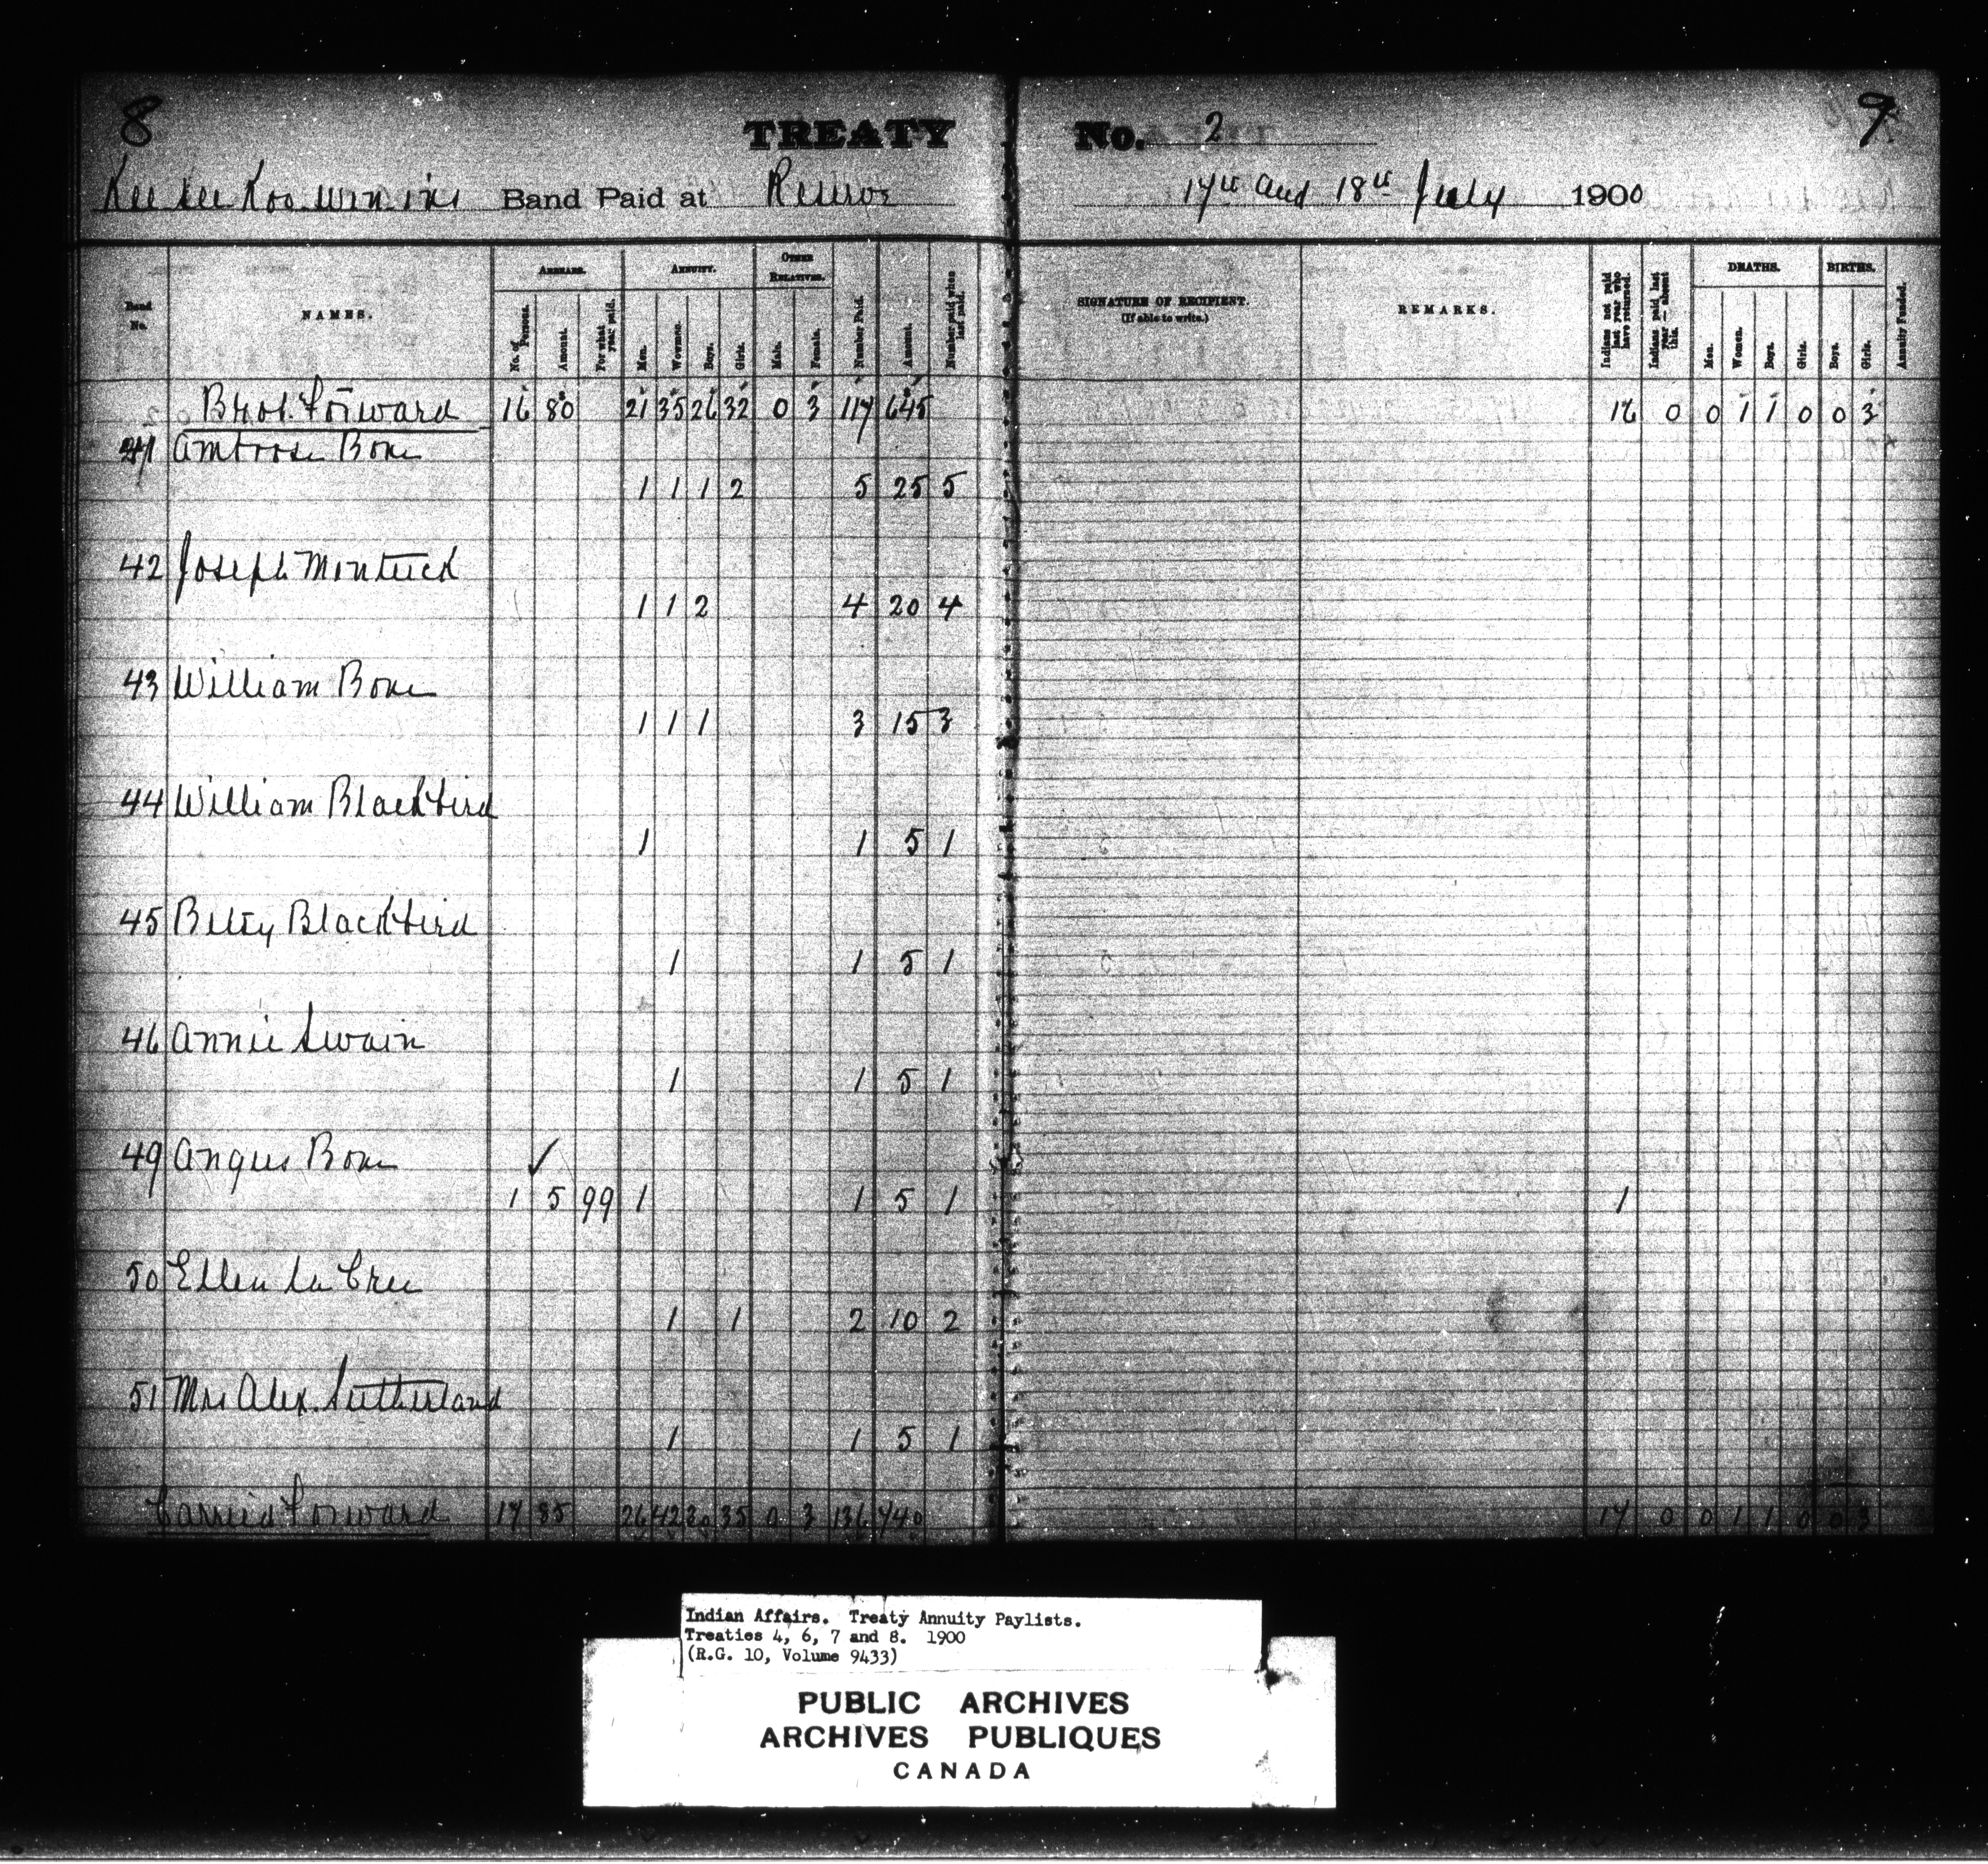 8
TREATY No. 2
9
Kee see Koo win ins Band Paid at Reserve 17th and 18th July 1900
Band No.
NAMES.
ARREARS.
No. of Persons.
Amount.
For what year paid.
ANNUITY.
Men.
Women.
Boys.
Girls.
OTHER RELATIVES.
Male.
Female.
Number Paid.
Amount.
Number paid when last paid.
SIGNATURE OF RECIPIENT.
(If able to write.)
REMARKS.
Indians not paid last year who have returned.
Indians paid last year — absent this.
DEATHS.
Men.
Women.
Boys.
Girls.
BIRTHS.
Boys.
Girls.
Annuity Funded.
Brot. Forward 16 80 21 35 26 32 0 3 117 645 16 0 0 1 1 0 0 3
41 Ambrose Bone
1 1 1 2 5 25 5
42 Joseph Mintuck
1 1 2 4 20 4
43 William Bone
1 1 1 3 15 3
44 William Blackbird
1 1 5 1
45 Betsy Blackbird
1 1 5 1
46 Annie Swain
1 1 5 1
49 Angus Bone ✓
1 5 99 1 1 5 1 1
50 Ellen La Cree
1 1 2 10 2
51 Mrs Alex. Sutherland
1 1 5 1
Carried Forward 17 85 26 42 30 35 0 3 136 740 17 0 0 1 1 0 0 3
Indian Affairs. Treaty Annuity Paylists.
Treaties 4, 6, 7 and 8. 1900
(R.G. 10, Volume 9433)
PUBLIC ARCHIVES
ARCHIVES PUBLIQUES
CANADA